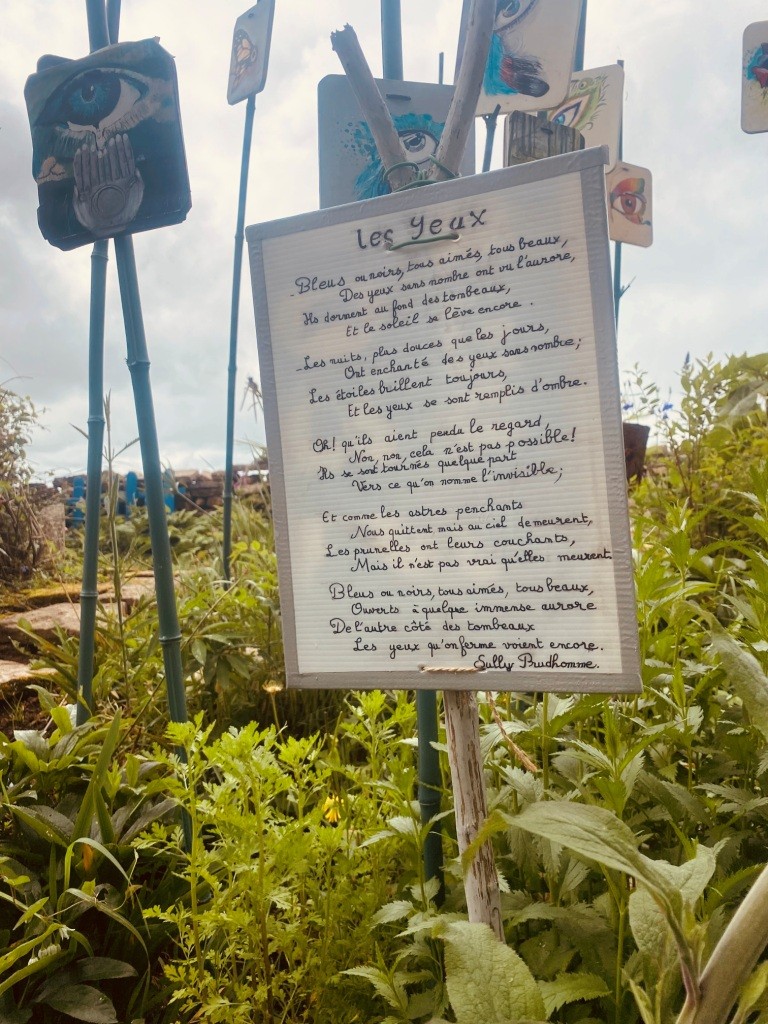 Les Yeux
- Bleus ou noirs, tous aimés, tous beaux,
Des yeux sans nombre ont vu l'aurore,
Ils dorment au fond des tombeaux,
Et le soleil se lève encore.
- Les nuits, plus douces que les jours,
Ont enchanté des yeux sans nombre;
Les étoiles brillent toujours,
Et les yeux se sont remplis d'ombre.
Oh! qu'ils aient perdu le regard,
Non, non, cela n'est pas possible!
Ils se sont tournés quelque part
Vers ce qu'on nomme l'invisible;
Et comme les astres penchants
Nous quittent mais au ciel demeurent,
Les prunelles ont leurs couchants,
Mais il n'est pas vrai qu'elles meurent.
Bleus ou noirs, tous aimés, tous beaux,
Ouverts à quelque immense aurore
De l'autre côté des tombeaux
Les yeux qu'on ferme voient encore.
Sully Prudhomme.